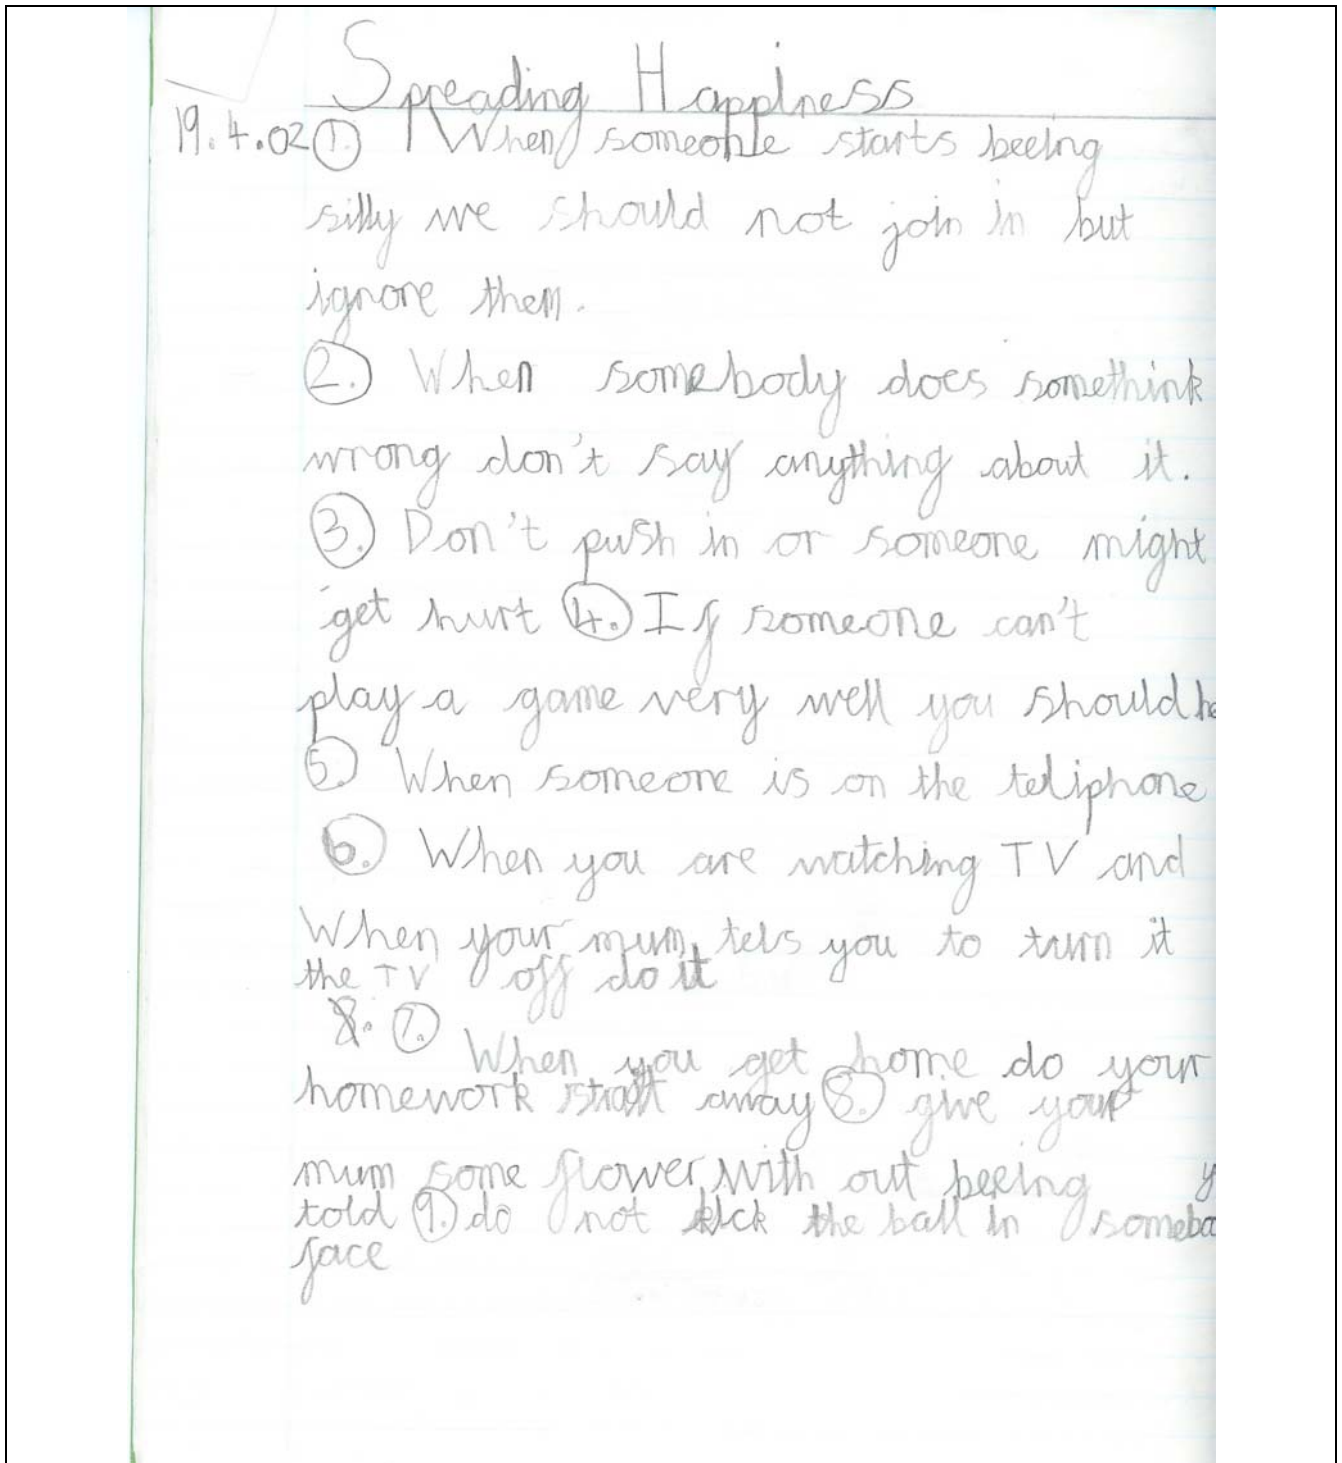 Spreading Happiness
19.4.02 1. When someone starts beeing
silly we should not join in but
ignore them.
2. When somebody does somethink
wrong don't say anything about it.
3. Don't push in or someone might
get hurt 4. If someone can't
play a game very well you should
5. When someone is on the teliphone
6. When you are watching TV and
When your mum tels you to turn it
the TV off do it
8. 7.
When you get home do your
homework away 8. give your
mum some flower with out beeing
told 9. do not kick the ball in
face